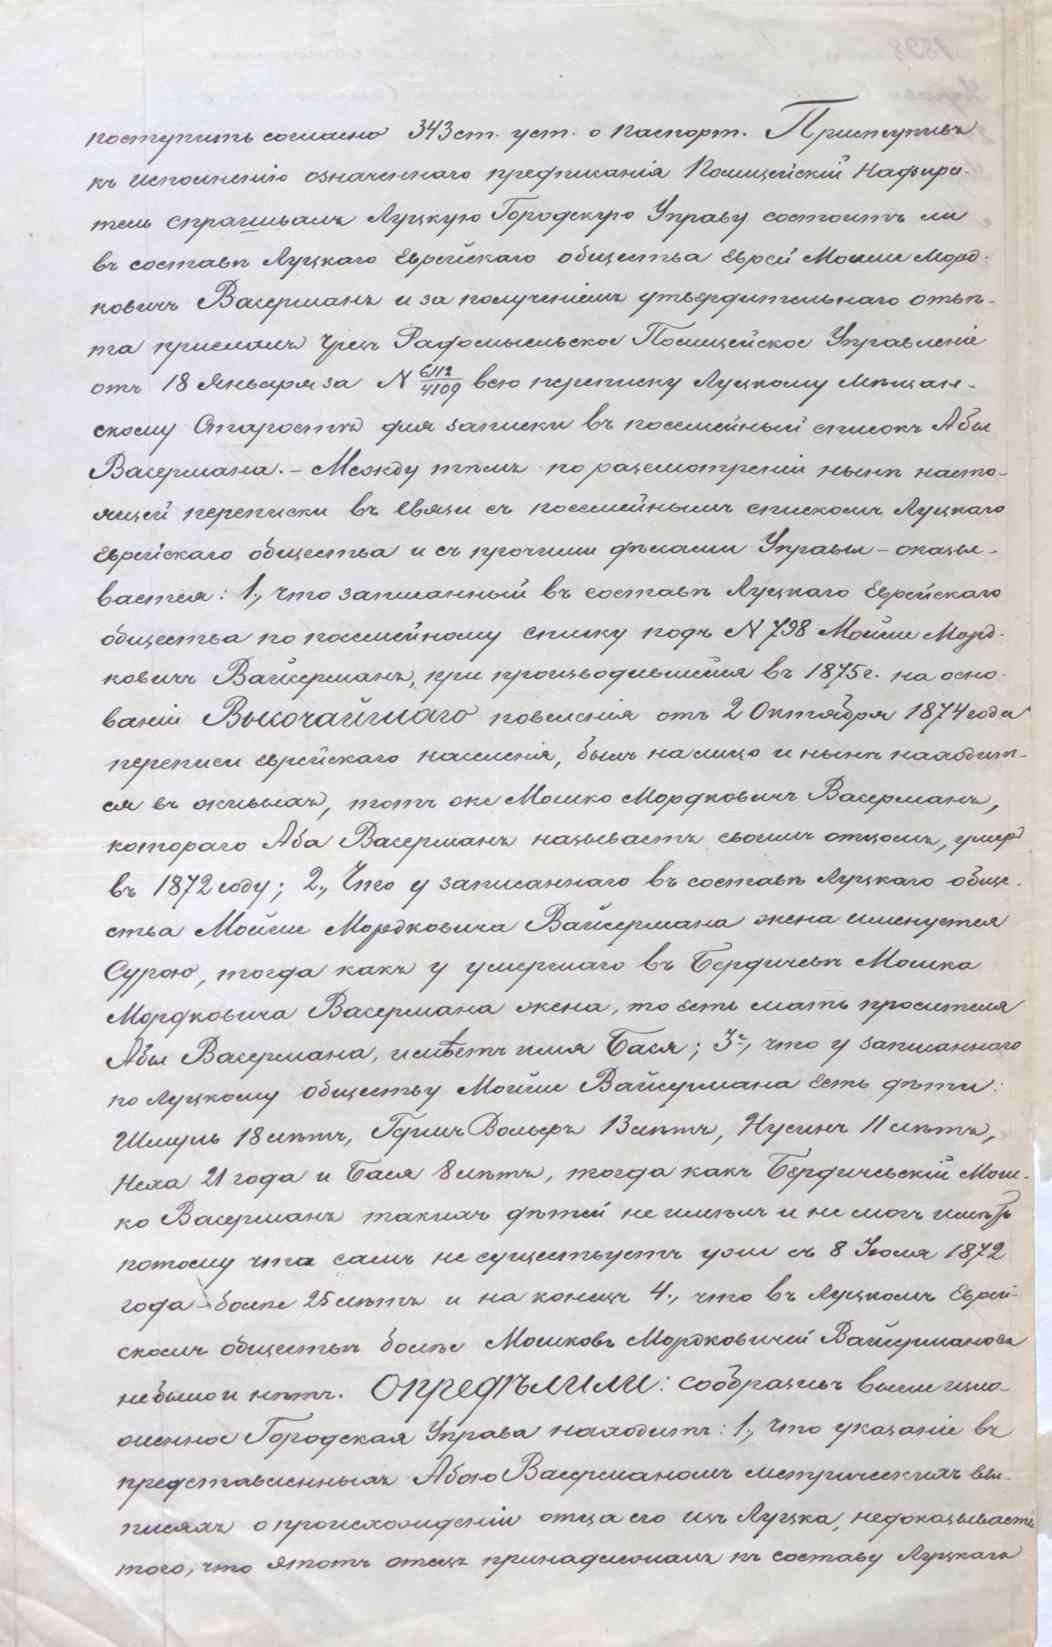 поступить согласно 343 ст. уст. о паспорт. Приступивъ
къ исполненію означеннаго предписанія Полицейскій Надзира-
тель спрашивалъ Луцкую Городскую Управу состоитъ ли
въ составѣ Луцкаго Еврейскаго общества Еврей Мошко Морд-
ковичъ Васерманъ и за полученіемъ утвердительнаго отвѣ-
та прислалъ чрезъ Радомысльское Полицейское Управленіе
отъ 18 Января за N 6112/4109 всю переписку Луцкому Мѣщан-
скому Старостѣ для записки въ посемейный списокъ Абы
Васермана. – Между тѣмъ по разсмотрѣніи нынѣ насто-
ящей переписки въ связи съ посемейнымъ спискомъ Луцкаго
Еврейскаго общества и съ прочими дѣлами Управы – оказы-
вается: 1., Что записанный въ составѣ Луцкаго Еврейскаго
общества по посемейному списку подъ N 798 Мойше Морд-
ковичъ Вайсерманъ, при производившейся въ 1875 г. на осно-
ваніи Высочайшаго повеленія отъ 2 Октября 1874 года
переписи еврейскаго населенія, былъ на лицо и нынѣ находит-
ся въ живыхъ, тотъ же Мошко Мордковичъ Васерманъ,
котораго Аба Васерманъ называетъ своимъ отцомъ, умеръ
въ 1872 году; 2., Что у записаннаго въ составѣ Луцкаго обще-
ства Мойше Мордковича Вайсермана жена именуется
Сурою, тогда какъ у умершаго въ Бердичевѣ Мошка
Мордковича Васермана жена, то есть мать просителя
Абы Васермана, имѣетъ имя Бася; 3е, что у записаннаго
по Луцкому обществу Мойше Вайсермана есть дѣти:
Шмуль 18 лѣтъ, Гершъ Вольфъ 13 лѣтъ, Нусинъ 11 лѣтъ,
Неха 21 года и Бася 8 лѣтъ, тогда какъ Бердичевскій Мош-
ко Васерманъ такихъ дѣтей не имѣлъ и не могъ имѣть
потому что самъ не существуетъ уже съ 8 Іюля 1872
года – болѣе 25 лѣтъ и на конецъ 4., что въ Луцкомъ Еврей-
скомъ обществѣ болѣе Мошковъ Мордковичей Вайсермановъ
небыло и нѣтъ. Опредѣлили: сообразивъ выше изло-
женное Городская Управа находитъ: 1., Что указаніе въ
представленныхъ Абою Васерманомъ метрическихъ вы-
писяхъ о происхожденіи отца его изъ Луцка, недоказываетъ
того, что этотъ отецъ принадлежалъ къ составу Луцкаго